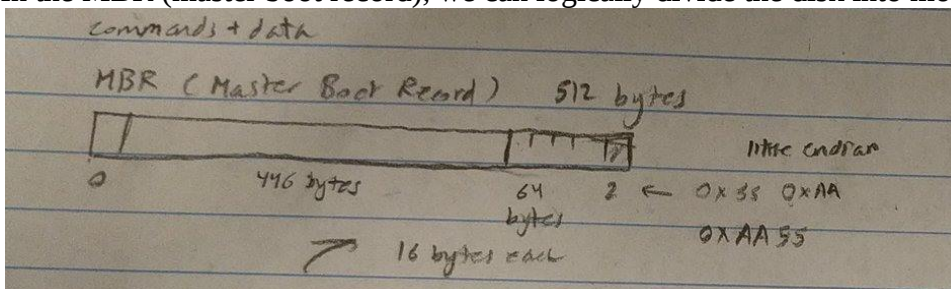 in the MBR (master boot record), we can logically divide the disk into
commands + data
MBR (Master Boot Record) 512 bytes
little endian
0 446 bytes 64 bytes 2 ← 0x55 0xAA
0xAA55
16 bytes each